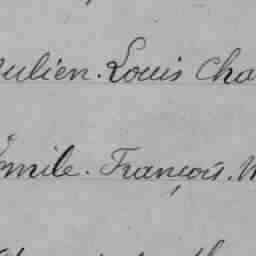 Julien. Louis Cha
Emile. François.